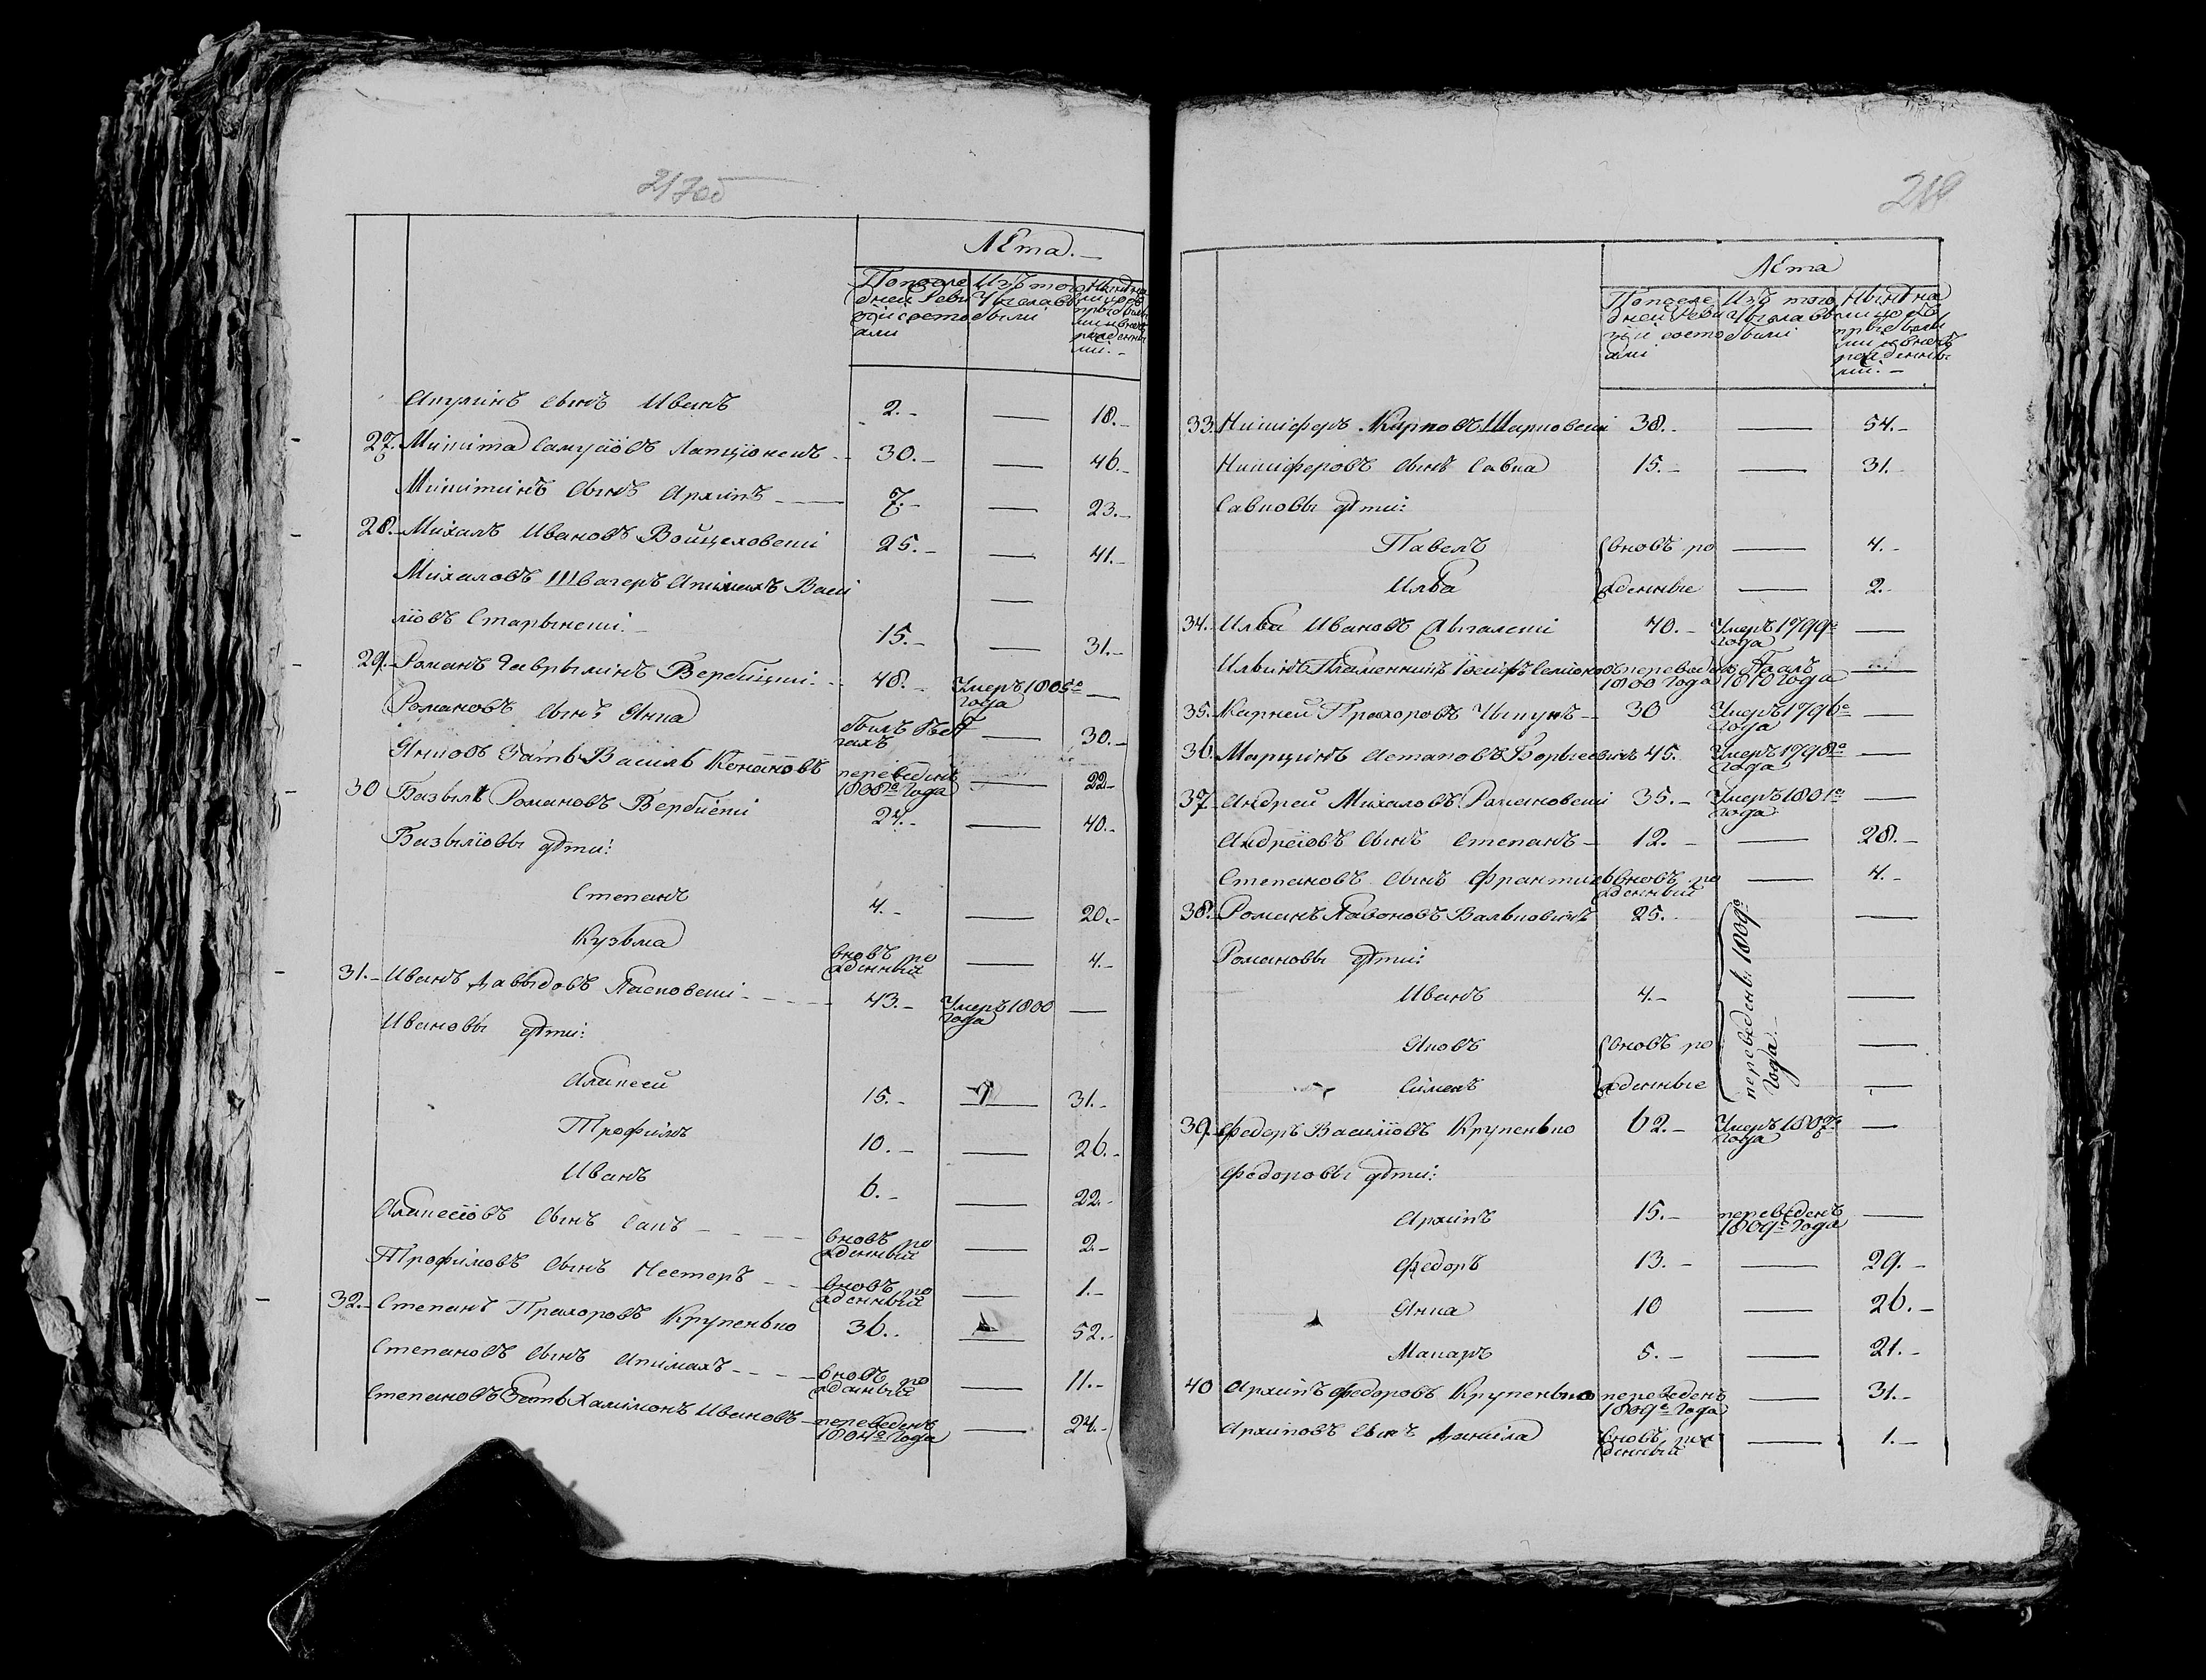 217об
Лѣта.
По последней Ревизіи состояли
Изъ того числа выбыли
Нынѣ на лицо съ прибылыми и вновь рожденными.
Сынъ Иванъ 2. — 18.
27. Микита Самуйловъ 30. — 46.
Микитинъ Сынъ Архипъ 7. — 23.
28. Михалъ Ивановъ Войцеховски 25. — 41.
Михаловъ Швагеръ Апінахъ Васи
лiовъ 15. — 31.
29. Романъ Гаврылинъ Вербицки 48. Умеръ 1805го Года —
Романовъ Сынъ Янка былъ въ бегахъ — 30.
Янковъ Зать Василь переведенъ 1808го Года — 22.
30 Базыль Романовъ Вербицки 24. — 40.
Базылiовы дѣти:
Степанъ 4. — 20.
Кузьма вновь рожденный — 4.
31. Иванъ Давыдовъ Пасковски 43. Умеръ 1800 Года —
Ивановы дѣти:
Аликсей 15. — 31.
Трофимъ 10. — 26.
Иванъ 6. — 22.
Аликсiовъ Сынъ вновь рожденный — 2.
Трофимовъ Сынъ Нестеръ вновь рожденный — 1.
32. Степанъ Прахоровъ Крупенько 36. — 52.
Степановъ Сынъ Апимахъ вновь рожденный — 11.
Степановъ Зать Халимонъ Ивановъ переведенъ 1804го Года — 24.
218
Лѣта
По последней Ревизіи состояли
Изъ того числа выбыли
Нынѣ на лицо съ прибылыми и вновь рожденными.
33. Никіферъ Карповъ Шарковски 38. — 54.
Никіферовъ Сынъ Савка 15. — 31.
Савковы дѣти:
Павелъ вновь ро — 4.
Илья жденные — 2.
34. Илья Ивановъ 70. Умеръ 1799го Года —
Ильинъ Племенникъ Іосифъ Семіоновъ переведенъ 1800 Года 1810 Года —
35. Карней Прахоровъ 30 Умеръ 1796го Года —
36. Марцинъ Астаповъ 45. Умеръ 1798го Года —
37. Андрей Михаловъ Романовски 35. Умеръ 1801го Года —
Андреiовъ Сынъ Степанъ 12. — 28.
Степановъ Сынъ Францишекъ вновь рожденный — 4.
38. Романъ 25. —
переведены 1809го Года.
Романовы дѣти:
Иванъ 4. —
Яковъ вновь ро —
Сименъ жденные —
39. Федоръ Василіовъ Крупенько 62. Умеръ 1807го Года —
Федоровы дѣти:
Архипъ 15. переведенъ 1809го Года —
Федоръ 13. — 29.
Янка 10 — 26.
Макаръ 5. — 21.
40 Архипъ Федоровъ Крупенько переведенъ 1809го Года — 31.
Архиповъ Сынъ Даніла вновь рожденный — 1.